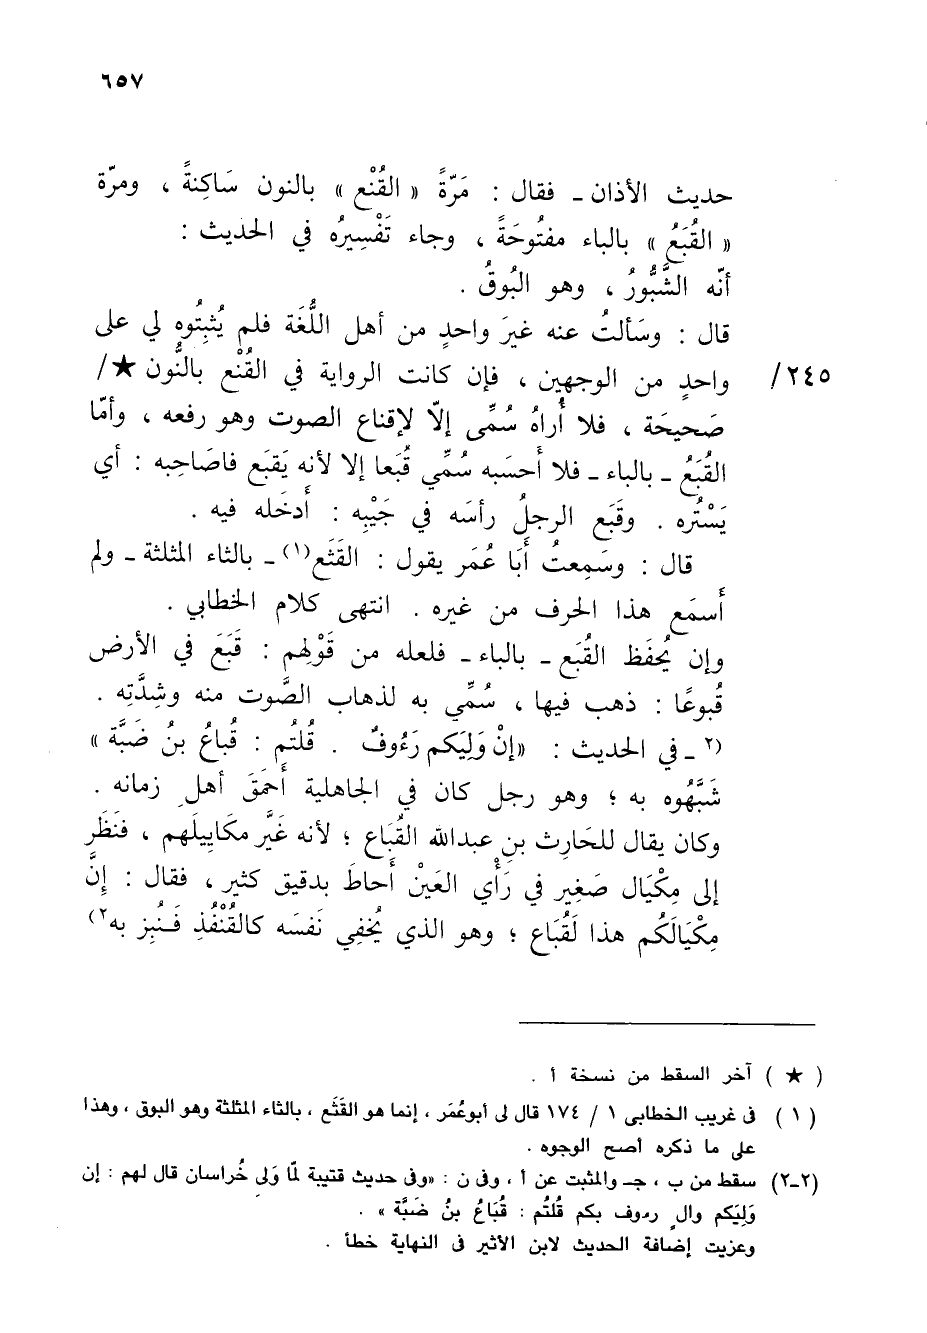 ٦٥٧
حديث الأذان ـ فقال : مَرّةً « القُنْع » بالنون سَاكِنةً ، ومرّة
« القُبَعُ » بالباء مفتُوحَةً ، وجاء تَفْسِيرُه في الحديث :
أنّه الشَّبُّورُ ، وهو البُوقُ .
قال : وسَألتُ عنه غيرَ واحدٍ من أهل اللُّغَة فلم يُثبِتُوه لي على
واحدٍ من الوجهين ، فإن كانت الرواية في القُنْع بالنُّون ★/ ٢٤٥/
صَحيحَة ، فلا أُراهُ سُمِّى إلاّ لإقناع الصوت وهو رفعه ، وأمّا
القُبَعُ ـ بالباء ـ فلا أَحسَبه سُمِّي قُبَعا إلا لأنه يَقبَع فاصَاحِبه : أي
يَسْتُره . وقَبَع الرجلُ رأسَه في جَيْبِه : أَدخَله فيه .
قال : وسَمِعتُ أَبَا عُمَر يقول : القَثَع(١) ـ بالثاء المثلثة ـ ولم
أَسمَع هذا الحرف من غيره . انتهى كلام الخطابي .
وإن يُحفَظ القُبَع ـ بالباء ـ فلعله من قَوْلِهم : قَبَعَ في الأرض
قُبوعًا : ذهب فيها ، سُمِّي به لذهاب الصَّوت منه وشِدَّتِه .
(٢ ـ في الحديث : «إنْ وَلِيَكم رَءُوفٌ . قُلتُم : قُباعُ بنُ ضَبَّة »
شَبَّهُوه به ؛ وهو رجل كان في الجاهلية أَحمَقَ أهلِ زمانه .
وكان يقال للحَارِث بنِ عبدالله القُبَاع ؛ لأنه غَيَّر مكَايِيلَهم ، فنَظَر
إلى مِكْيَال صَغِير في رَأْي العَينْ أَحاطَ بدقيق كثير ، فقال : إنَّ
مِكْيَالَكُم هذا لَقُبَاع ؛ وهو الذي يُخفِي نَفسَه كالقُنْفُذِ فَنُبِز به٢)
( ★ ) آخر السقط من نسخة أ .
( ١ ) فى غريب الخطابى ١ / ١٧٤ قال لى أبوعُمَر ، إنما هو القَثَع ، بالثاء المثلثة وهو البوق ، وهذا
على ما ذكره أصح الوجوه .
(٢ـ٢) سقط من ب ، جـ والمثبت عن أ ، وفى ن : «وفى حديث قتيبة لمّا وَلِى خُراسان قال لهم : إن
وَلِيَكم والٍ رءوف بكم قُلتُم : قُبَاعُ بنُ ضَبَّة » .
وعزيت إضافة الحديث لابن الأثير فى النهاية خطأ .